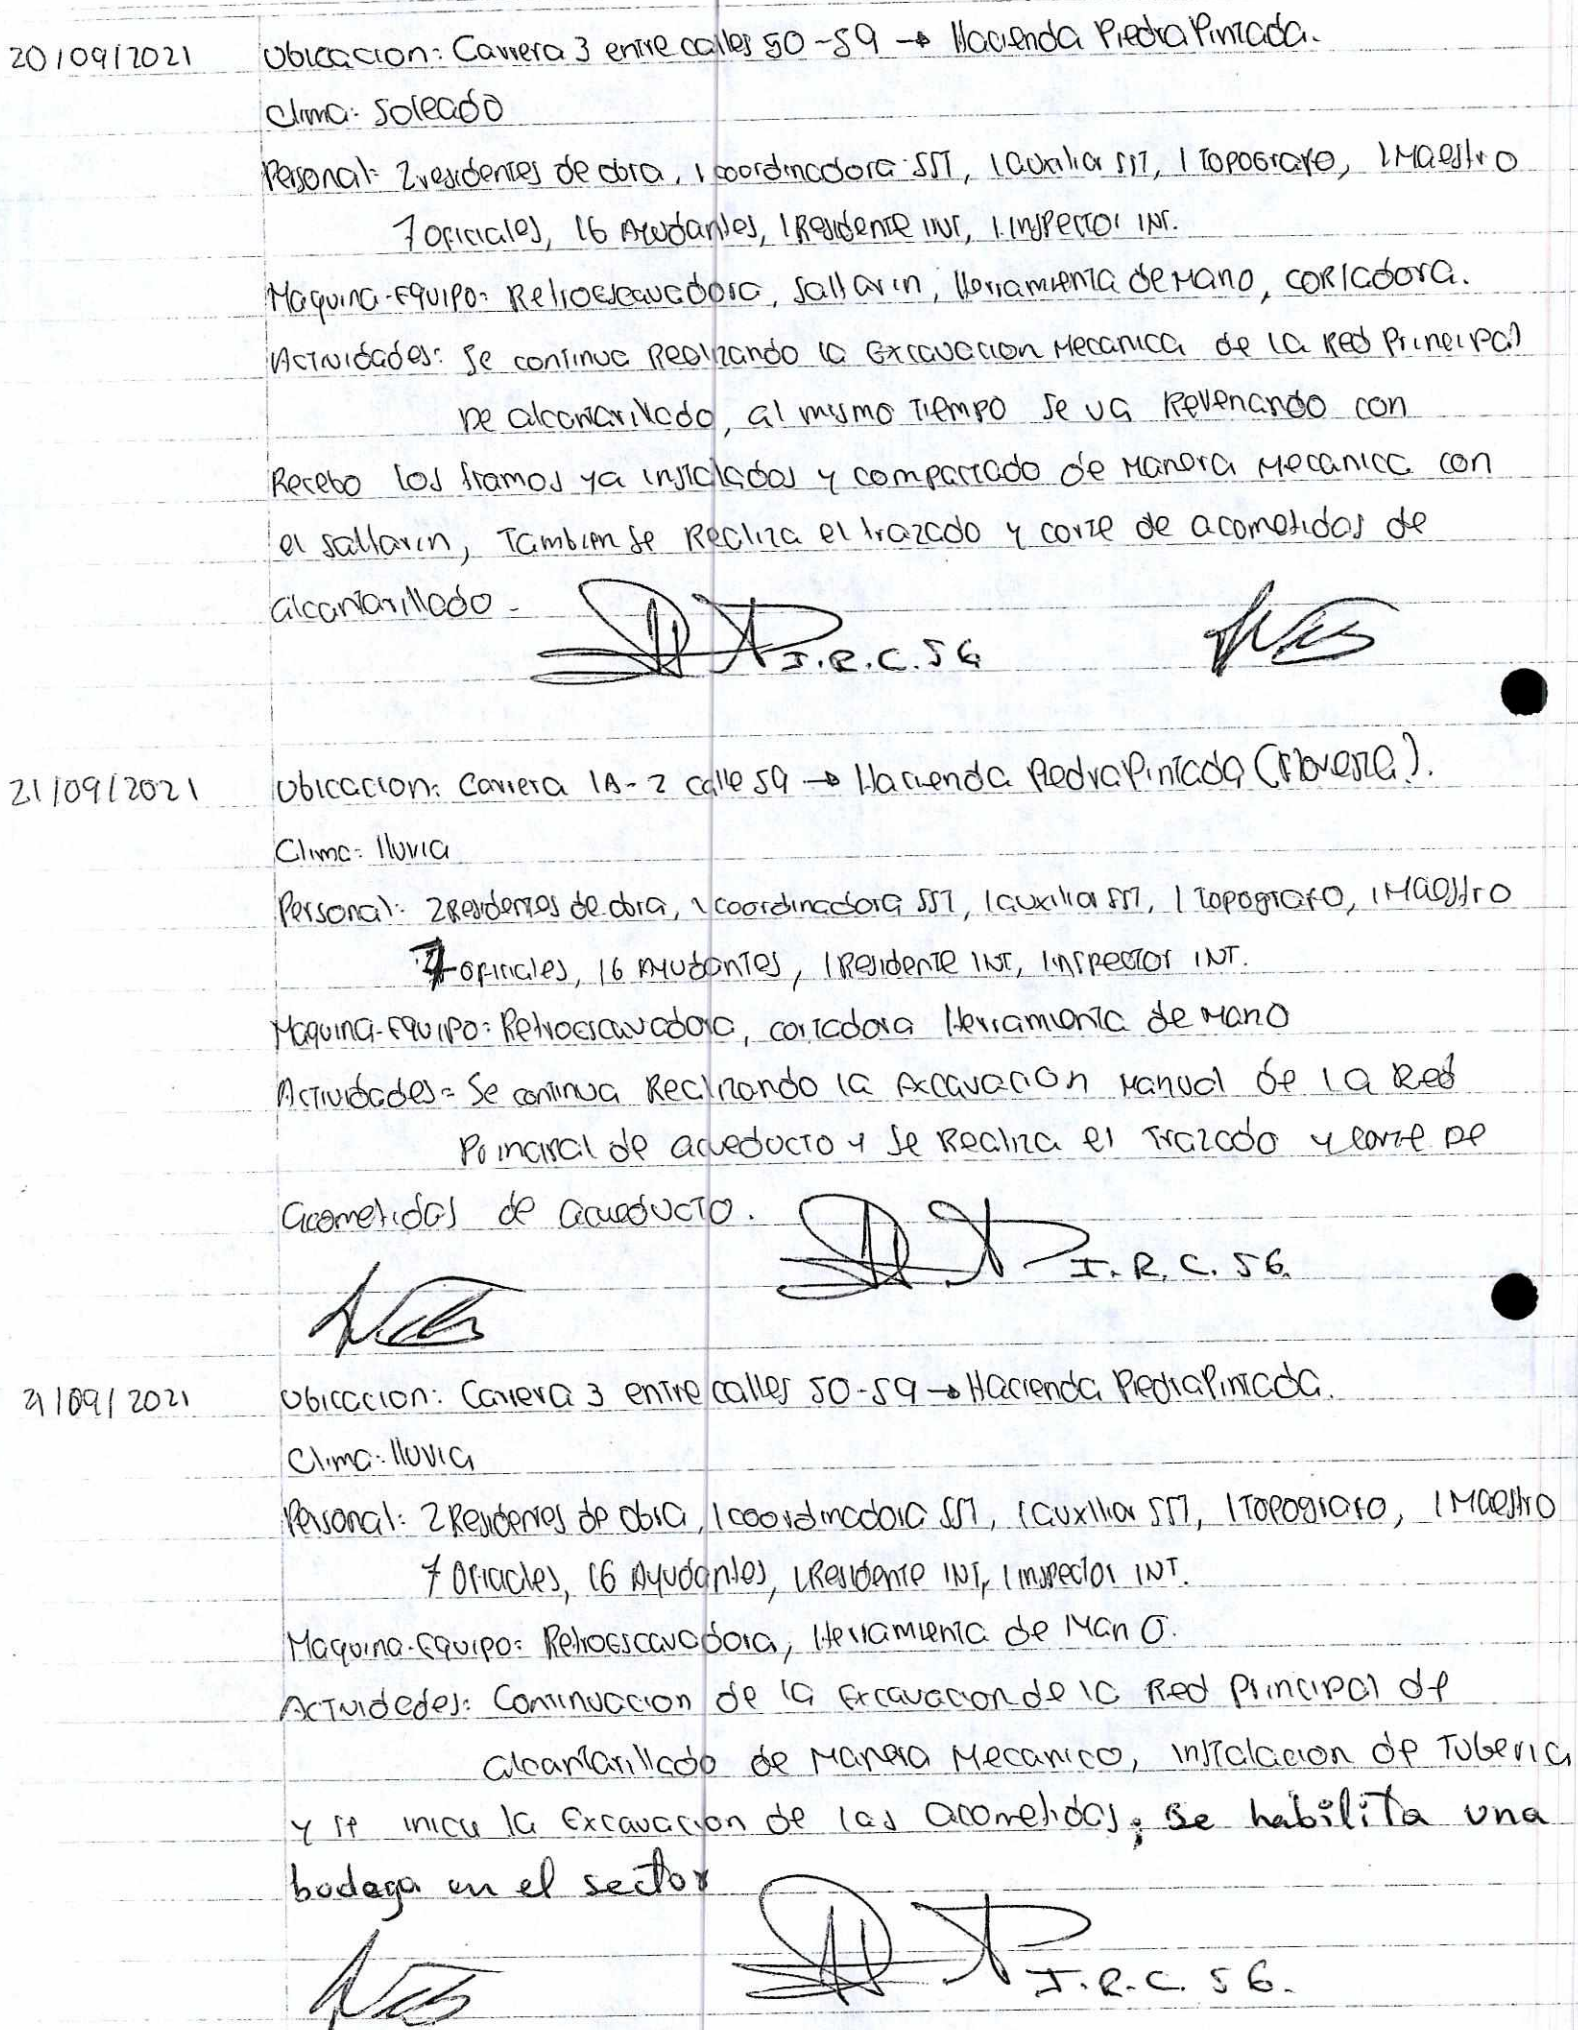 20/09/2021 Ubicacion: Carrera 3 entre calles 50-59 → Hacienda Piedra Pintada.
Clima: Soleado
Personal: 2 residentes de obra, 1 coordinadora SST, 1 auxiliar SST, 1 Topografo, 1 Maestro
7 oficiales, 16 Ayudantes, 1 Residente INT, 1 Inspector INT.
Maquina-Equipo: Retroescavadora, Saltarin, Herramienta de Mano, cortadora.
Actividades: Se continua Realizando la Excavacion Mecanica de la Red Principal
De alcantarillado, al mismo Tiempo se va Rellenando con
Recebo los tramos ya instalados y compactado de Manera Mecanica con
el saltarin, Tambien se Realiza el trazado y corte de acometidas de
alcantarillado.
I.R.C. 56
21/09/2021 Ubicacion: Carrera 1A-2 calle 59 → Hacienda Piedra Pintada (Floresta).
Clima: lluvia
Personal: 2 Residentes de obra, 1 coordinadora SST, 1 auxiliar SST, 1 Topografo, 1 Maestro
7 oficiales, 16 Ayudantes, 1 Residente INT, 1 inspector INT.
Maquina-Equipo: Retroescavadora, cortadora Herramienta de Mano
Actividades: Se continua Realizando la Excavacion Manual de la Red
Principal de acueducto y se Realiza el Trazado y corte De
acometidas de acueducto.
I.R.C. 56.
21/09/2021 Ubicacion: Carrera 3 entre calles 50-59 → Hacienda Piedra Pintada.
Clima: lluvia
Personal: 2 Residentes de obra, 1 coordinadora SST, 1 auxiliar SST, 1 Topografo, 1 Maestro
7 Oficiales, 16 Ayudantes, 1 Residente INT, 1 inspector INT.
Maquina-Equipo: Retroescavadora, Herramienta de Mano.
Actividedes: Continuacion de la Excavacion de la Red Principal de
alcantarillado de Manera Mecanico, instalacion de Tuberia
y se inicia la Excavacion de las acometidas; se habilita una
bodega en el sector
I.R.C. 56.